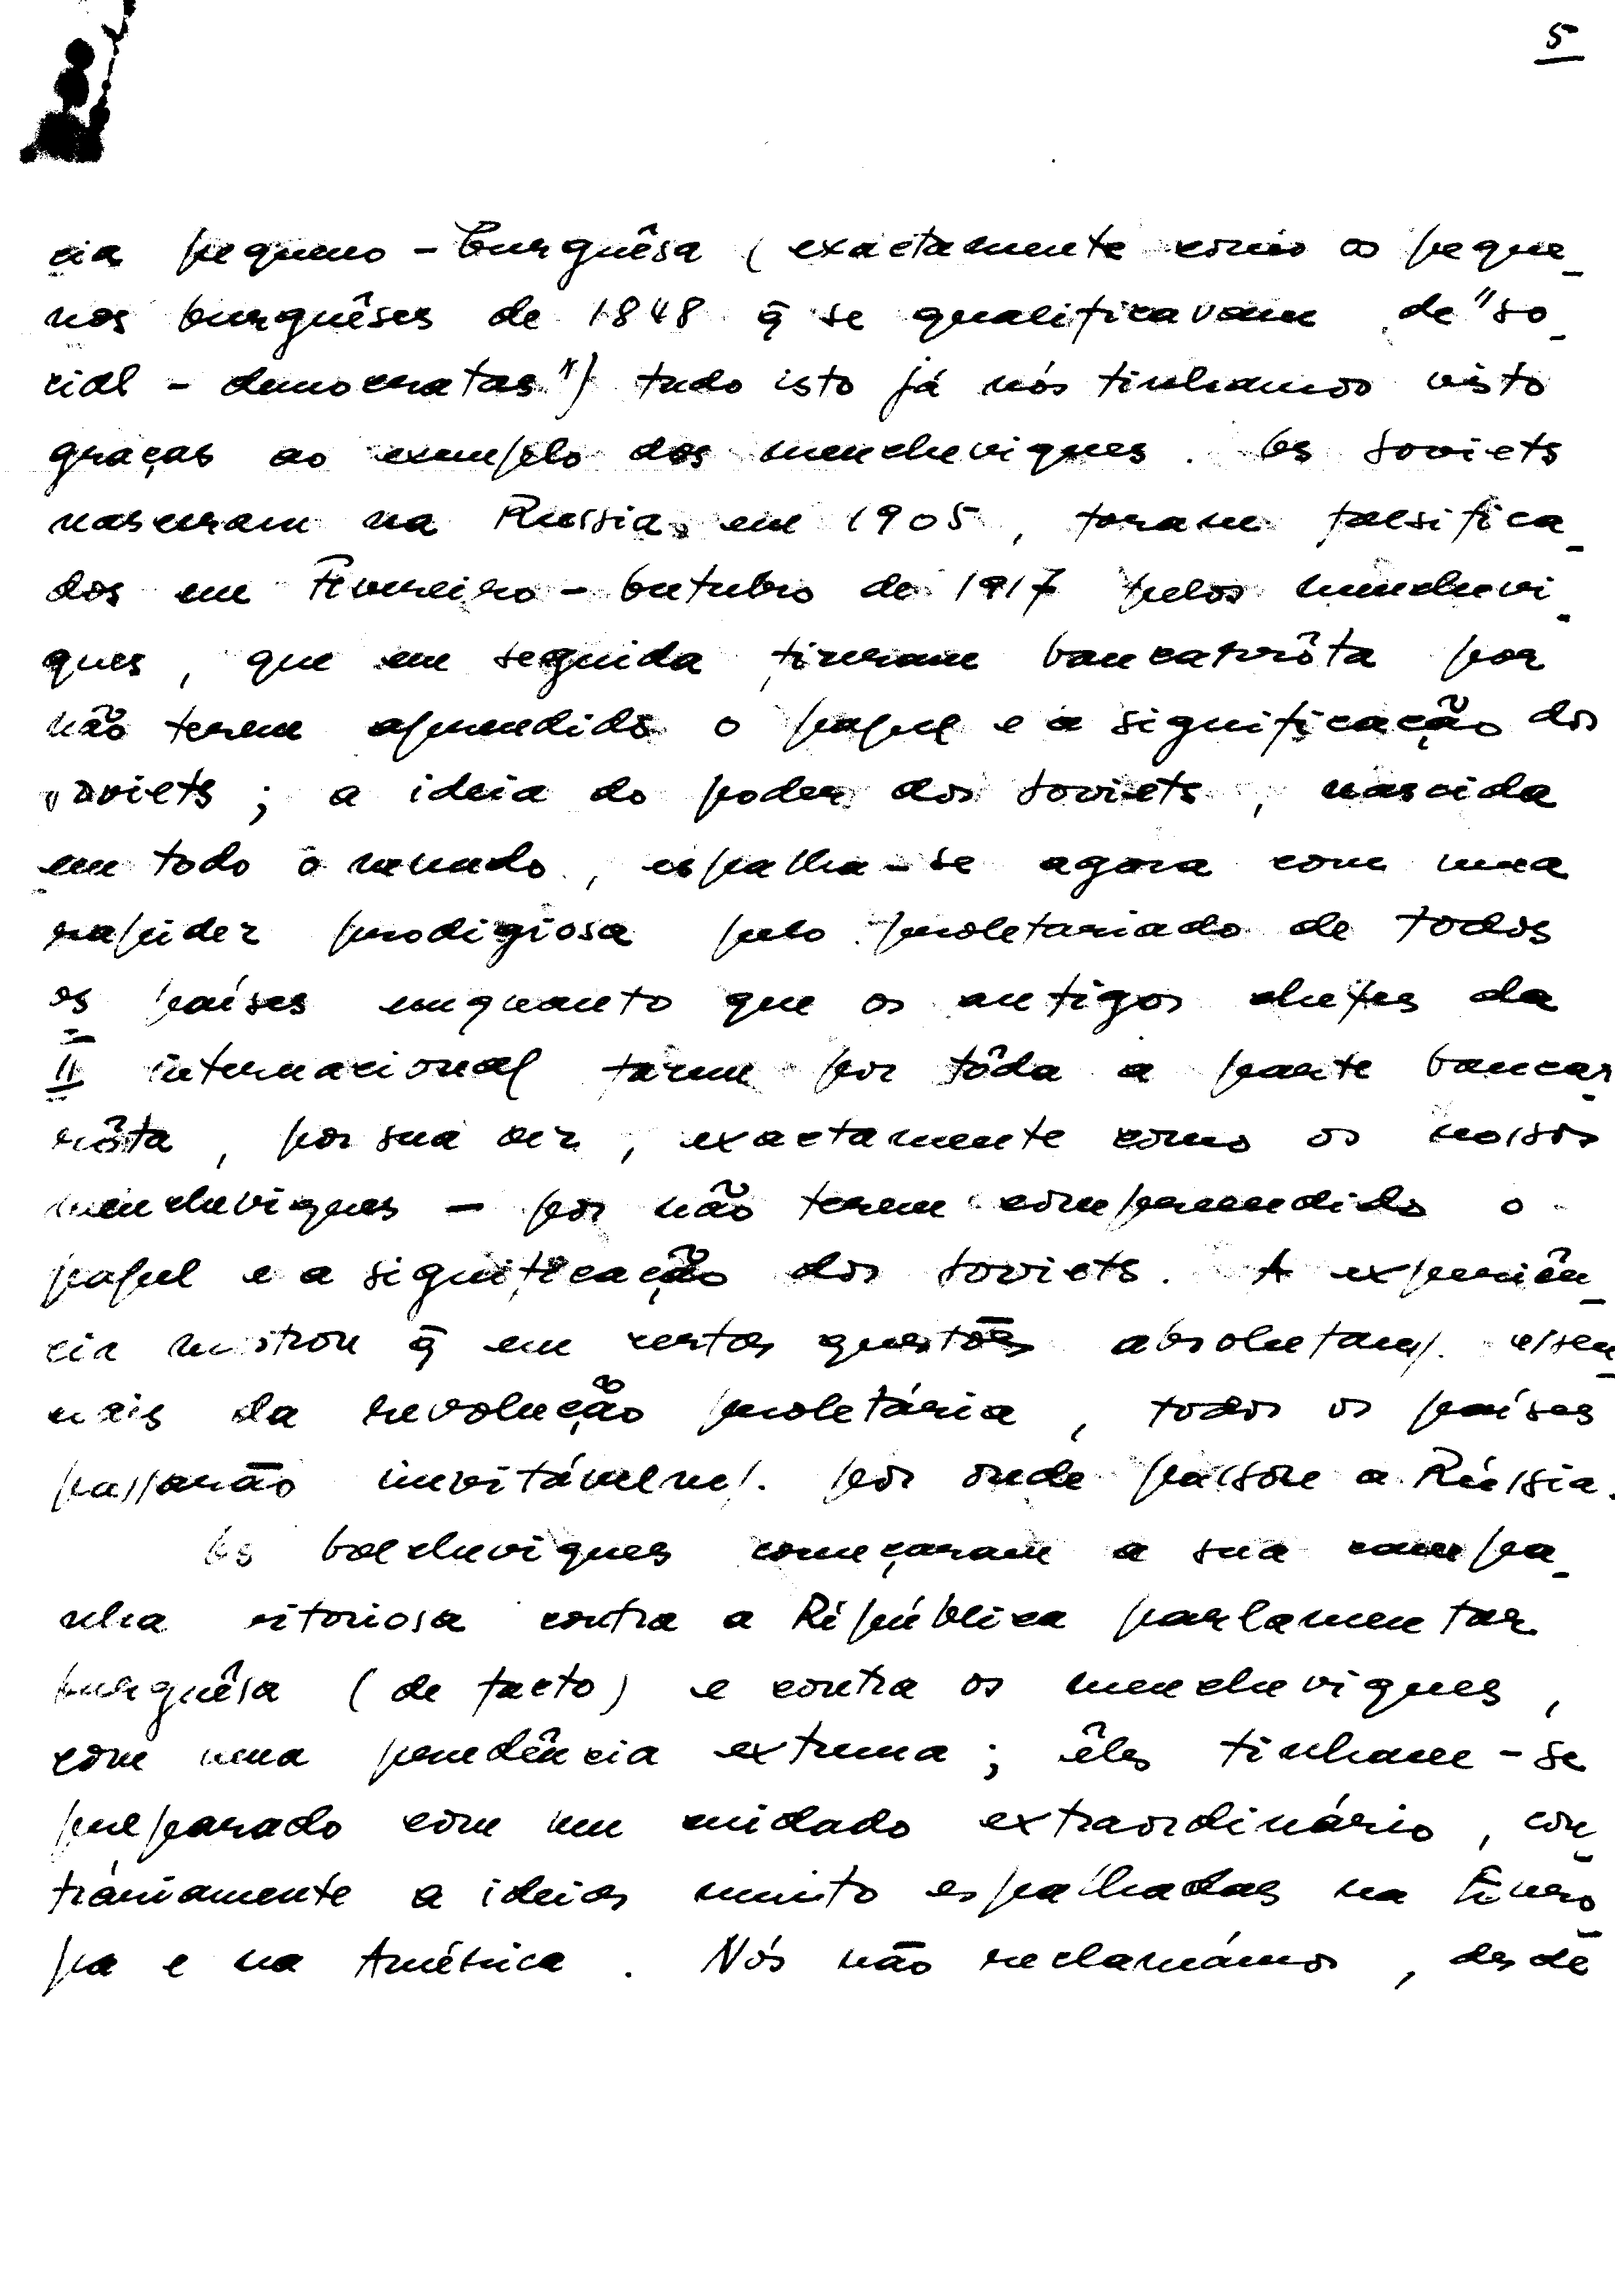 5
cia pequeno - burguêsa (exactamente como os peque_
nos burguêses de 1848 q̃ se qualificavam de "so_
cial - democratas") tudo isto já nós tinhamos visto
graças ao exemplo dos mencheviques. Os soviets
nasceram na Russia, em 1905, foram falsifica_
dos em Fevereiro - Outubro de 1917 pelos menchevi_
ques, que em seguida fizeram bancarrôta por
não terem aprendido o papel e a significação dos
soviets; a ideia do poder dos soviets, nascida
em todo o mundo, espalha-se agora com uma
rapidez prodigiosa pelo proletariado de todos
os países emquanto que os antigos chefes da
II internacional fazem por tôda a parte bancar_
rôta, por sua vez, exactamente como os nossos
mencheviques - por não terem compreendido o
papel e a significação dos soviets. A experiên_
cia mostrou q̃ em certas questões absolutam/. essen_
ciais da revolução proletária, todos os países
passarão inevitávelm/. por onde passou a Rússia.
Os bolcheviques começaram a sua campa_
nha vitoriosa contra a República parlamentar
burguêsa (de facto) e contra os mencheviques,
com uma prudência extrema; êles tinham-se
preparado com um cuidado extraordinário, con_
tráriamente a ideias muito espalhadas na Euro_
pa e na América. Nós não reclamámos, desde